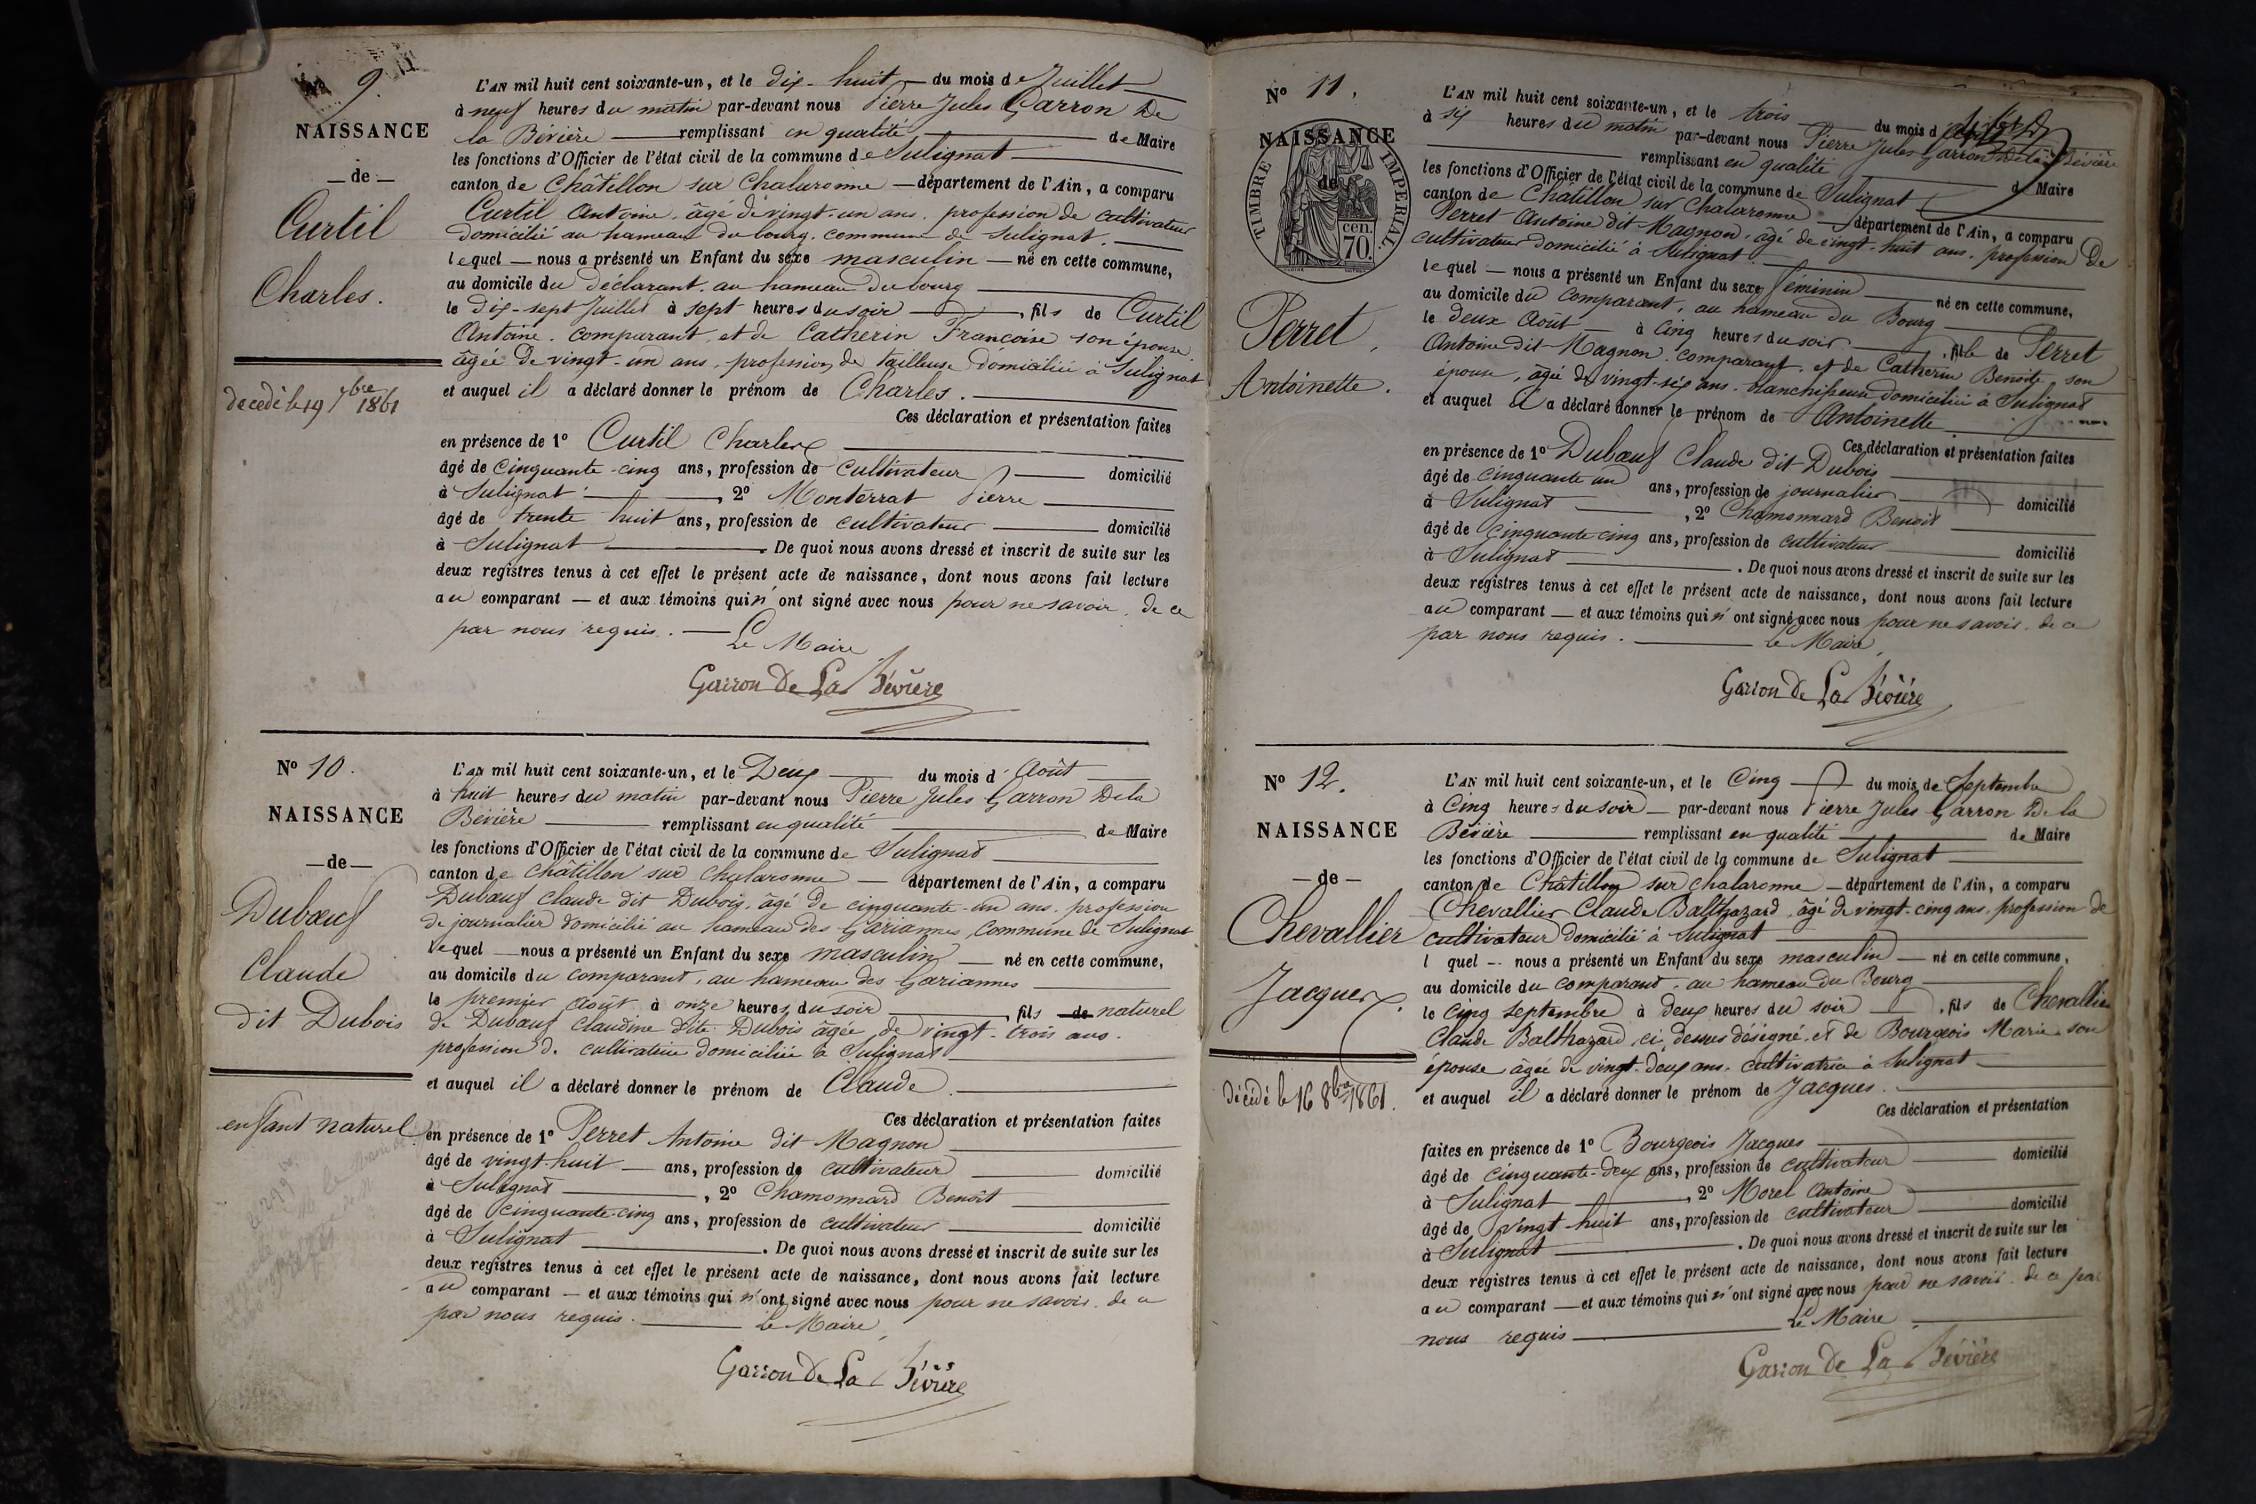 9.
NAISSANCE
— de —
Curtil
Charles.
décédé le 19 7bre 1861
L'AN mil huit cent soixante-un, et le dix-huit du mois de Juillet
à neuf heures du matin par-devant nous Pierre Jules Garron De
la Bévière remplissant en qualité de Maire
les fonctions d'Officier de l'état civil de la commune de Sulignat
canton de Châtillon sur Chalaronne département de l'Ain, a comparu
Curtil Antoine, âgé de vingt-un ans, profession de cultivateur
domicilié au hameau du bourg, commune de Sulignat.
lequel nous a présenté un Enfant du sexe masculin né en cette commune,
au domicile du déclarant, au hameau du bourg
le dix-sept Juillet à sept heures du soir, fils de Curtil
Antoine, comparant, et de Catherin Françoise son épouse,
âgée de vingt-un ans, profession de tailleuse domiciliée à Sulignat
et auquel il a déclaré donner le prénom de Charles.
Ces déclaration et présentation faites
en présence de 1° Curtil Charles
âgé de cinquante-cinq ans, profession de cultivateur domicilié
à Sulignat, 2° Monterrat Pierre
âgé de trente huit ans, profession de cultivateur domicilié
à Sulignat. De quoi nous avons dressé et inscrit de suite sur les
deux registres tenus à cet effet le présent acte de naissance, dont nous avons fait lecture
au comparant — et aux témoins qui n'ont signé avec nous pour ne savoir, de ce
par nous requis. Le Maire
Garron De La Bévière
N° 10.
NAISSANCE
— de —
Dubœuf
Claude
dit Dubois
enfant naturel
L'AN mil huit cent soixante-un, et le Deux du mois d'Août
à huit heures du matin par-devant nous Pierre Jules Garron De la
Bévière remplissant en qualité de Maire
les fonctions d'Officier de l'état civil de la commune de Sulignat
canton de Châtillon sur Chalaronne département de l'Ain, a comparu
Dubœuf Claude dit Dubois, âgé de cinquante-un ans, profession
de journalier domicilié au hameau des Gariannes, commune de Sulignat
lequel nous a présenté un Enfant du sexe masculin né en cette commune,
au domicile du comparant, au hameau des Gariannes
le premier Août à onze heures du soir, fils de naturel
de Dubœuf Claudine dite Dubois âgée de vingt-trois ans.
profession de cultivatrice domiciliée à Sulignat
et auquel il a déclaré donner le prénom de Claude.
Ces déclaration et présentation faites
en présence de 1° Perret Antoine dit Magnon
âgé de vingt-huit ans, profession de cultivateur domicilié
à Sulignat, 2° Chamonnard Benoît
âgé de cinquante-cinq ans, profession de cultivateur domicilié
à Sulignat. De quoi nous avons dressé et inscrit de suite sur les
deux registres tenus à cet effet le présent acte de naissance, dont nous avons fait lecture
au comparant — et aux témoins qui n'ont signé avec nous pour ne savoir, de ce
par nous requis. Le Maire,
Garron De La Bévière
N° 11.
NAISSANCE
de
TIMBRE IMPÉRIAL
cen. 70.
Perret,
Antoinette.
L'AN mil huit cent soixante-un, et le trois du mois d'
à six heures du matin par-devant nous Pierre Jules Garron De la Bévière
remplissant en qualité de Maire
les fonctions d'Officier de l'état civil de la commune de Sulignat
canton de Châtillon sur Chalaronne département de l'Ain, a comparu
Perret Antoine dit Magnon, âgé de vingt-huit ans, profession De
cultivateur domicilié à Sulignat.
lequel — nous a présenté un Enfant du sexe féminin né en cette commune,
au domicile du comparant, au hameau du Bourg
le deux Août à cinq heures du soir, fille de Perret
Antoine dit Magnon, comparant, et de Catherin Benoite, son
épouse, âgée de vingt-six ans, blanchisseuse domiciliée à Sulignat
et auquel il a déclaré donner le prénom de Antoinette
Ces déclaration et présentation faites
en présence de 1° Dubœuf Claude dit Dubois
âgé de cinquante un ans, profession de journalier domicilié
à Sulignat, 2° Chamonnard Benoît
âgé de cinquante cinq ans, profession de cultivateur domicilié
à Sulignat. De quoi nous avons dressé et inscrit de suite sur les
deux registres tenus à cet effet le présent acte de naissance, dont nous avons fait lecture
au comparant — et aux témoins qui n'ont signé avec nous pour ne savoir, de ce
par nous requis. Le Maire,
Garron De La Bévière
N° 12.
NAISSANCE
— de —
Chevallier
Jacques.
décédé le 16 8bre 1861.
L'AN mil huit cent soixante-un, et le Cinq du mois de Septembre
à Cinq heures du soir par-devant nous Pierre Jules Garron De la
Bévière remplissant en qualité de Maire
les fonctions d'Officier de l'état civil de la commune de Sulignat
canton de Châtillon sur Chalaronne département de l'Ain, a comparu
Chevallier Claude Balthazard, âgé de vingt-cinq ans, profession de
cultivateur domicilié à Sulignat
l quel — nous a présenté un Enfant du sexe masculin né en cette commune,
au domicile du comparant, au hameau du Bourg
le cinq Septembre à Deux heures du soir, fils de Chevallier
Claude Balthazard, ci-dessus désigné, et de Bourgeois Marie son
épouse âgée de vingt-deux ans, cultivatrice à Sulignat
et auquel il a déclaré donner le prénom de Jacques.
Ces déclaration et présentation
faites en présence de 1° Bourgeois Jacques
âgé de cinquante-deux ans, profession de cultivateur domicilié
à Sulignat, 2° Morel Antoine
âgé de vingt huit ans, profession de cultivateur domicilié
à Sulignat. De quoi nous avons dressé et inscrit de suite sur les
deux registres tenus à cet effet le présent acte de naissance, dont nous avons fait lecture
au comparant — et aux témoins qui n'ont signé avec nous pour ne savoir, de ce par
nous requis Le Maire
Garron De La Bévière